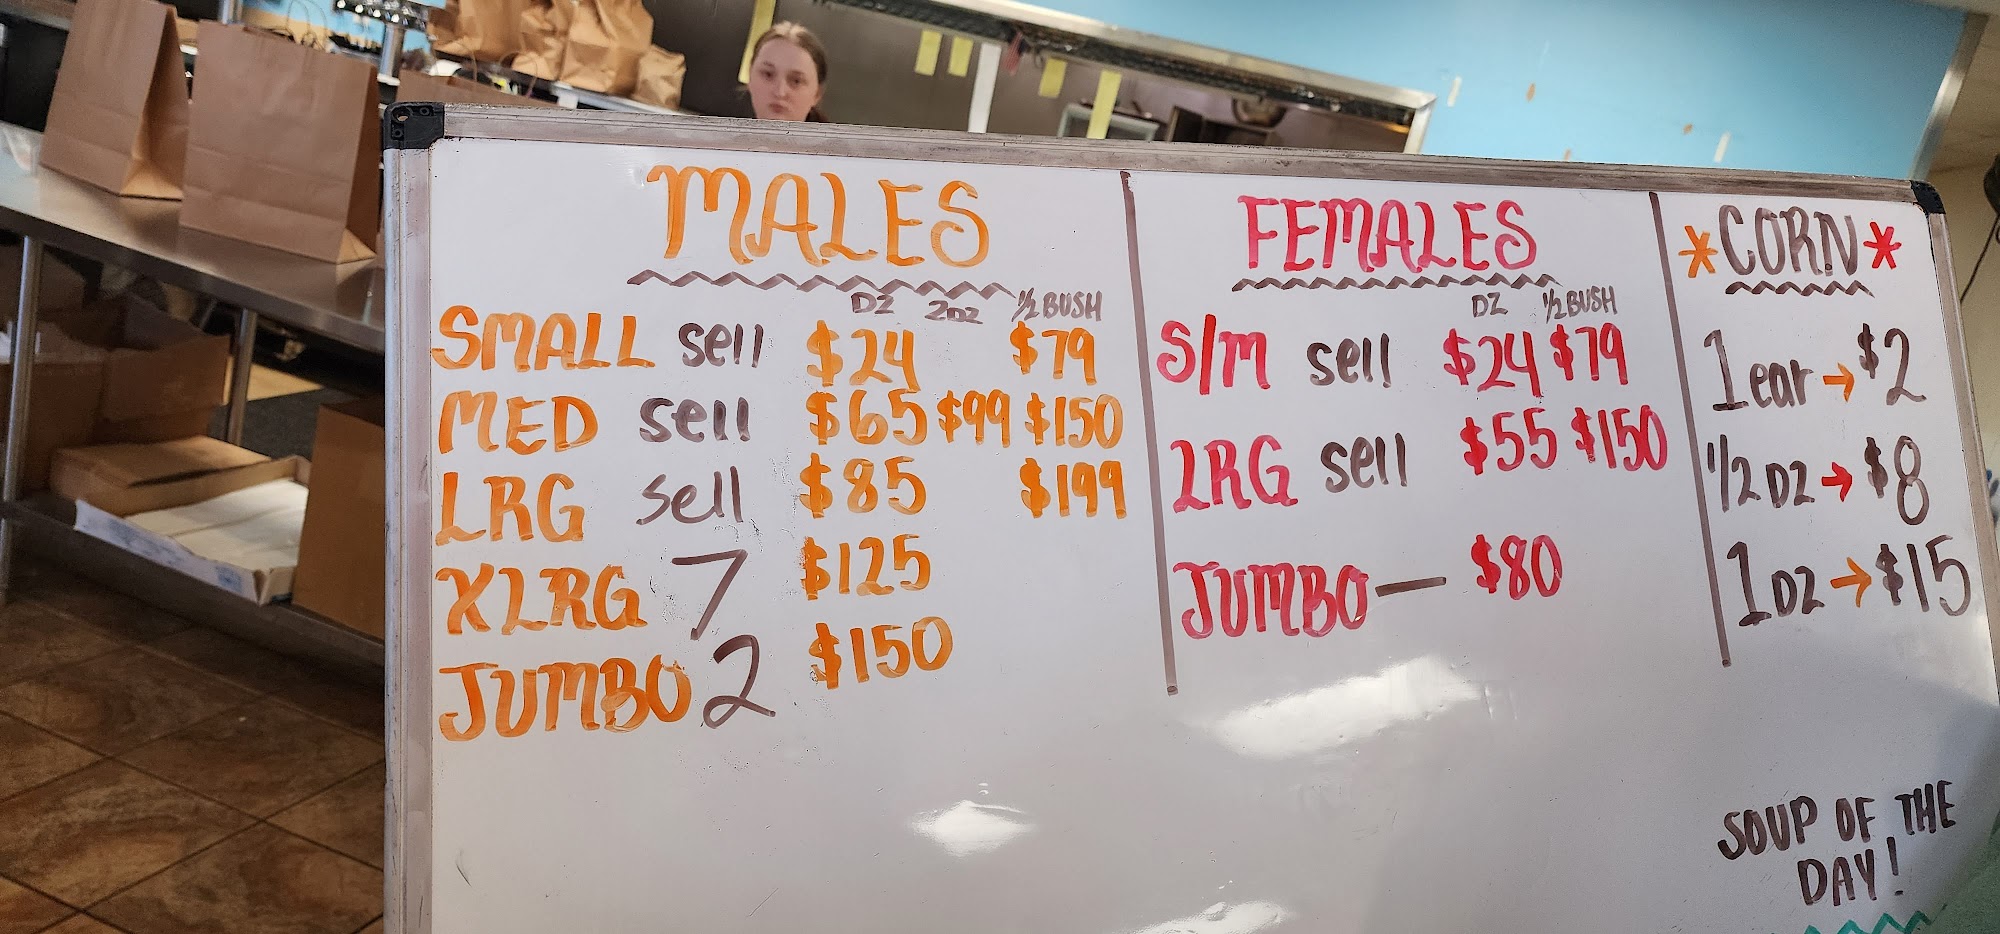 MALES
DZ 2DZ 1/2 BUSH
SMALL sell $24 $79
MED sell $65 $99 $150
LRG sell $85 $199
XLRG 7 $125
JUMBO 2 $150
FEMALES
DZ 1/2 BUSH
S/M sell $24 $79
LRG sell $55 $150
JUMBO — $80
*CORN*
1 ear → $2
1/2 DZ → $8
1 DZ → $15
SOUP OF THE
DAY!